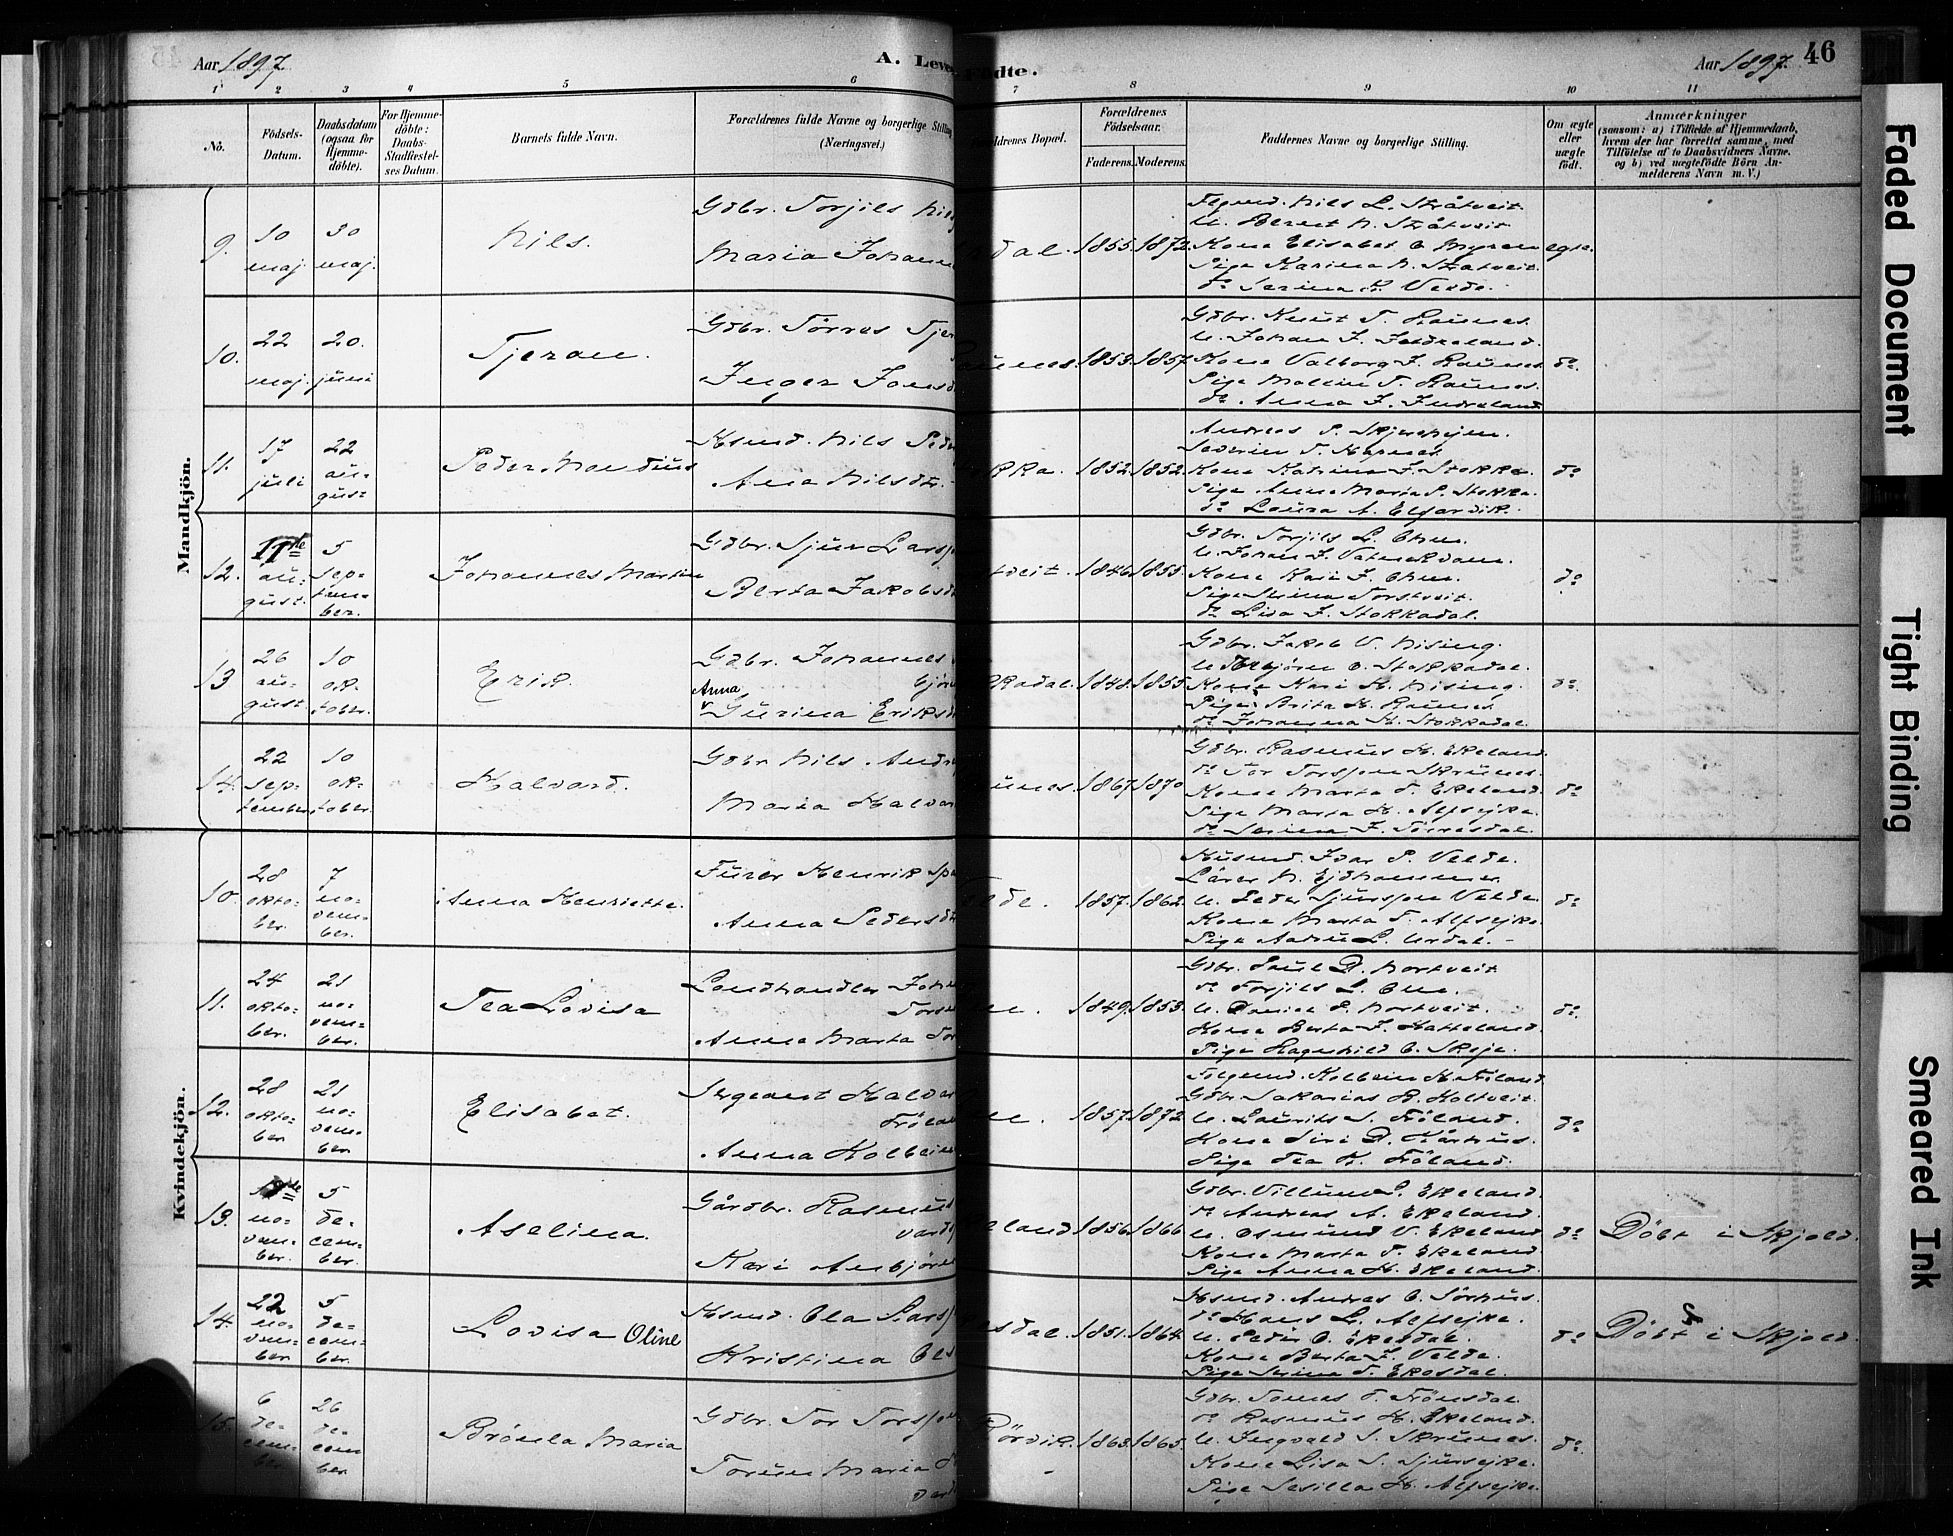 Aar 1897
A. Leve
Födte.
Aar 1897.
46
1 2 3 4 5 6 7 8 9 10 11
No.
Födsels-
Datum.
Daabsdatum
(ogsaa for
Hjemme-
döbte).
For Hjemme-
döbte:
Daabs-
Stadfæstel-
ses Datum.
Barnets fulde Navn.
Forældrenes fulde Navne og borgerlige Stilling
(Næringsvei.)
ldrenes Bopæl.
Forældrenes
Födselsaar.
Faderens. Moderens.
Faddernes Navne og borgerlige Stilling.
Om ægte
eller
uægte
født.
Anmærkninger
(saasom: a) i Tilfælde af Hjemmedaab,
hvem der har forrettet samme, med
Tilföielse af to Daabsvidners Navne.
og b) ved uægtefödte Börn An-
melderens Navn m. V.)
Mandkjön.
9.
10
maj.
30
maj.
Nils.
Gdbr. Torjils Nils
Maria Johann
dal.
1855. 1872.
Nils L. Stråtveit
U. Berent N. Stråtveit
Kone Elisabet O. Myren
Pige Karina N. Stråtveit.
do Serina K. Veede.
egte.
10.
22
maj.
20.
juni
Tjeran.
Gdbr. Törres Tjer
Inger Jonsd
aunes.
1853. 1857.
Gdbr. Knut T. Raunes.
U. Johan J. Indreland.
Kone Valborg J. Raunes
Pige Malene T. Raunes.
do. Anna J. Indreland
do.
11.
17
juli
22
au-
gust
Peder Mandius
Hsmd. Nils Peder
Ana Nilsdtr.
kka.
1852. 1852.
Andreas P.
Severin T.
Kone Katrina J. Stokka.
Pige Anne Maria P. Stokka.
do Laura A.
do
12.
11te
au-
gust.
5
sep-
tem-
ber.
Johannes Martin
Gdbr. Sjur Larss
Berta Jakobsd
tveit.
1846. 1855.
Gdbr. Torjils L. Öen.
U. Johan J.
Kone Kari J. Öen.
Pige Serina Torstveit.
do Lisa J. Stokkadal.
do
13
26
au-
gust.
10
ok-
tober.
Erik.
Gdbr. Johannes
björn
Anna
Gurina Eriksd
kkadal.
1848. 1855.
Gdbr. Jakob V. Nising.
U. Torbjörn O. Stokkadal.
Kone Kari H. Nising.
Pige Brita H. Raunes
do Johanna H. Stokkadal.
do.
14.
22
sep-
tember
10
ok-
tober.
Halvard.
Gdbr Nils Andr
Maria Halvar
unes.
1867. 1870
Gdbr. Rasmus H. Ekeland
do Tor Torsson Skrunes.
Kone Marta T. Ekeland.
Pige Marta H. Alfsejke.
do Serina J.
do
Kvindekjön.
10.
28
okto-
ber.
7
no-
vem-
ber.
Anna Henriette.
Furer Henrik
Anna Pedersdtr
ede.
1857. 1862.
Husmd. Ivar P. Veede.
Lärer N.
U. Peder Sjursson Veede
Kone Marta T. Alfsejke.
Pige
do
11.
24
okto-
ber.
21
no-
vem-
ber.
Tea Lovisa
Landhandler Joha
Tors
Anna Marta Tor
en.
1849. 1853.
Gdbr. Paul D. Nortveit
do Torjils L. Öen.
U. Daniel P. Nortveit.
Kone Berta J. Hatteland.
Pige Ragnhild O. Skeje.
do.
12.
28
okto-
ber
21
no-
vem-
ber
Elisabet.
Sergeant Halvar
Fröland
Anna Kolbein
en.
1857. 1872
Kolbein
Gdbr. Sakarias R. Holtveit.
U. Laurits S. Fröland.
Kone Siri D.
Pige Tea K. Fröland.
do
13.
no-
vem-
ber.
5
de-
cem-
ber.
Aselina.
Gårdbr. Rasmus
vards
Kari Anbjörn
eland
1856. 1866
Gdbr. Villum S. Ekeland.
do Andreas A. Ekeland.
U. Osmund V. Ekeland
Kone Marta T. Ekeland.
Pige Anna H. Ekeland.
do
Döbt i Skjold.
14.
22
no-
vem-
ber
5
de-
cem-
ber.
Lovisa Oline
Hsmd. Ola Larss
Kristina Ols
sdal.
1851. 1864.
Hsmd. Andreas O. Sörhus.
do Hans L. Alfsejke.
U. Peder O. Ekesdal.
Kone Berta J. Veede.
Pige Serina T. Ekesdal.
do
Döbt i Skjold.
15.
6
de-
cem-
ber
26
de-
cem
ber.
Brönla Maria
Gdbr. Tor Torsson
Torine Maria
vard
Rörvik.
1863. 1865.
Gdbr. Tomas T.
do Rasmus H. Ekeland.
U. Ingvald S. Skrunes.
Kone Lisa S. Sjursejke.
Pige Sesilla H. Alfsejke.
do.
Faded Document
Tight Binding
Smeared Ink